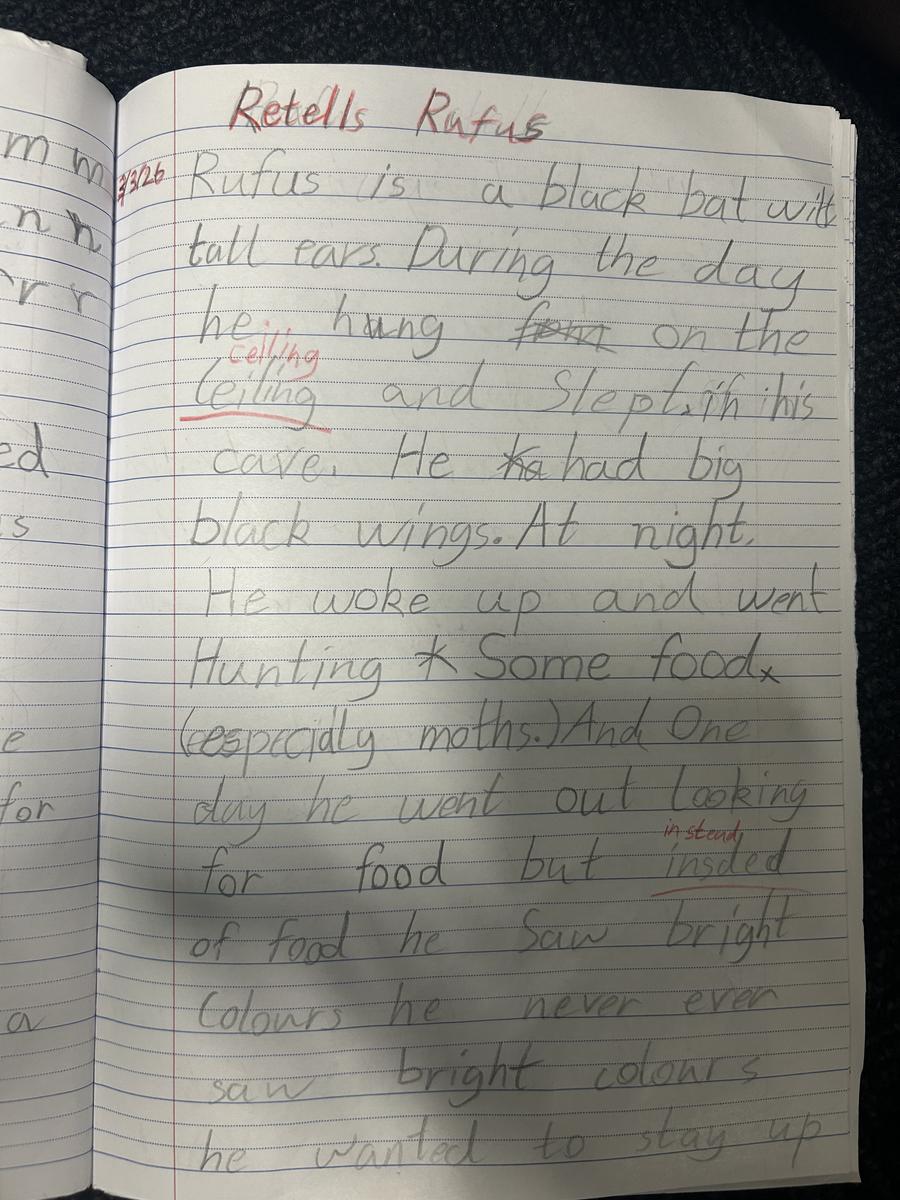 Retells Rufus
3/3/26
Rufus is a black bat with
tall ears. During the day
he hung from on the
ceiling
Ceiling and Slept, in his
cave. He ha had big
black wings. At night.
He woke up and went
Hunting * Some food x
(especially moths.) And One
day he went out looking
instead
for food but insded
of food he Saw bright
Colours he never ever
saw bright colours
he wanted to stay up
m m
n n
r r
ed
s
e
for
a